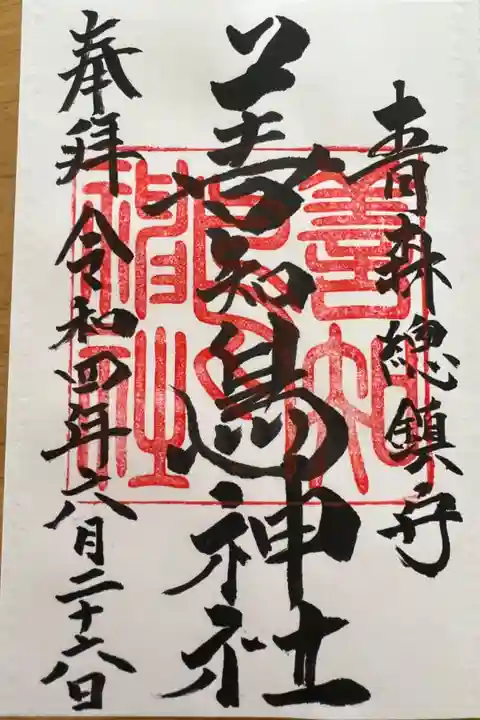 青森総鎮守
善知鳥神社
奉拝 令和四年六月二十六日
善知鳥神社